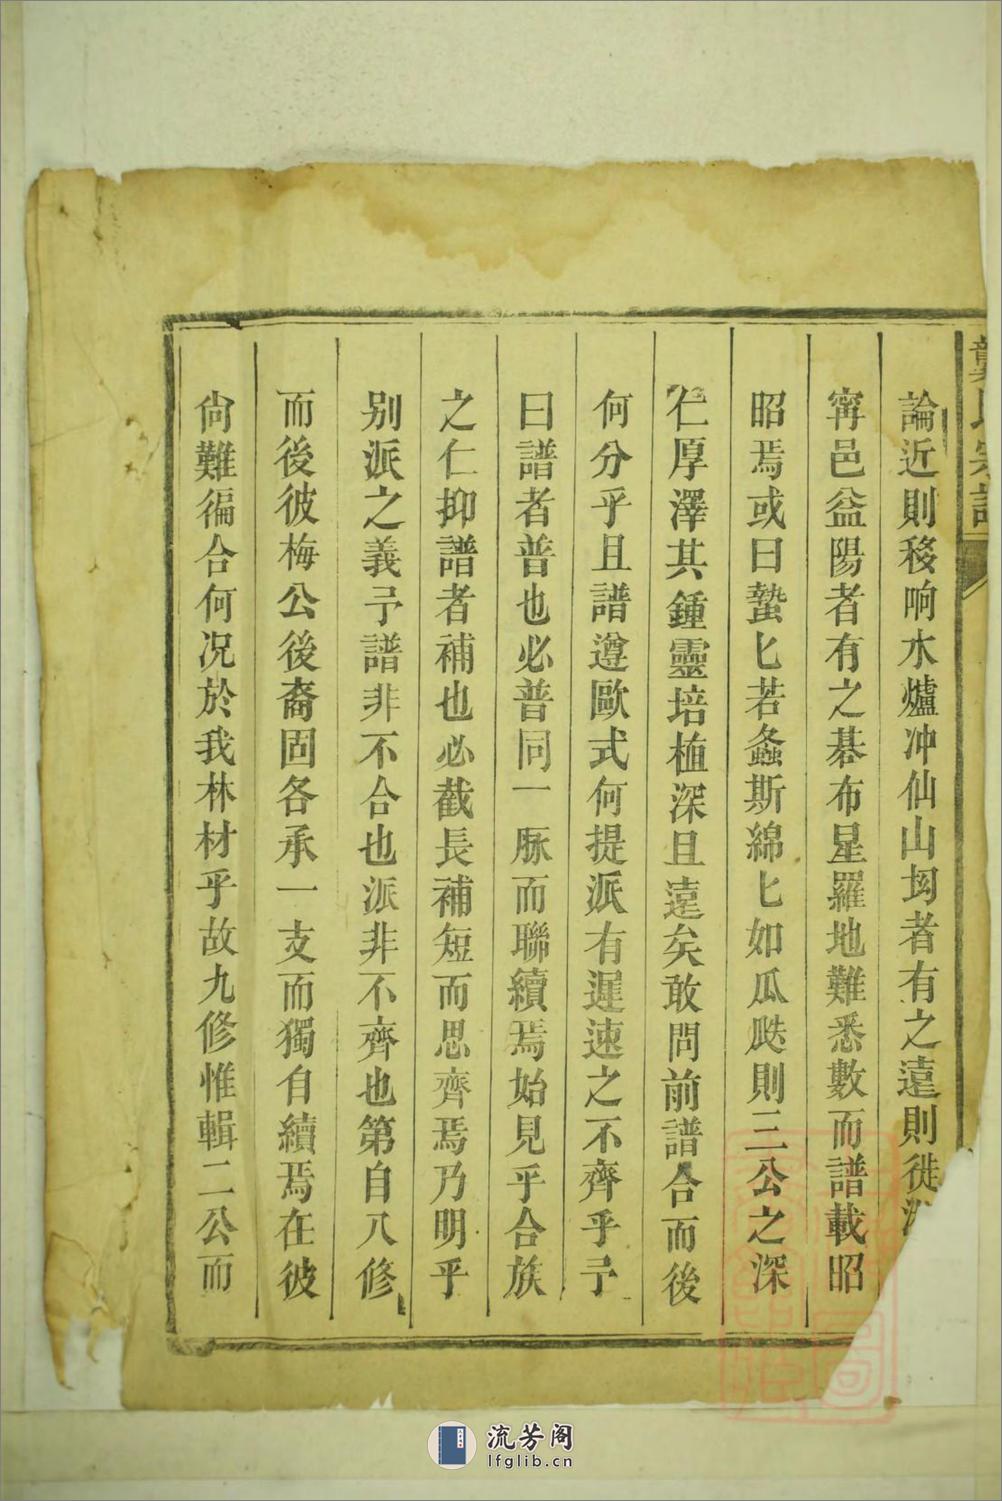 龔氏宗譜
論近則移响水爐冲仙山坳者有之遠則徙
寕邑益陽者有之碁布星羅地難悉數而譜載昭
昭焉或曰蟄匕若螽斯綿匕如瓜瓞則三公之深
仁厚澤其鍾靈培植深且遠矣敢問前譜合而後
何分乎且譜遵歐式何提派有遲速之不齊乎予
曰譜者普也必普同一脉而聯續焉始見乎合族
之仁抑譜者補也必截長補短而思齊焉乃明乎
别派之義予譜非不合也派非不齊也第自八修
而後彼梅公後裔固各承一支而獨自續焉在彼
尙難徧合何况於我林材乎故九修惟輯二公而
流芳阁
lfglib.cn